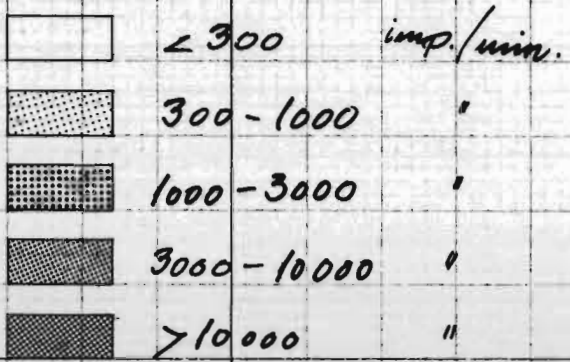 < 300 imp./min.
300 - 1000 "
1000 - 3000 "
3000 - 10000 "
> 10000 "